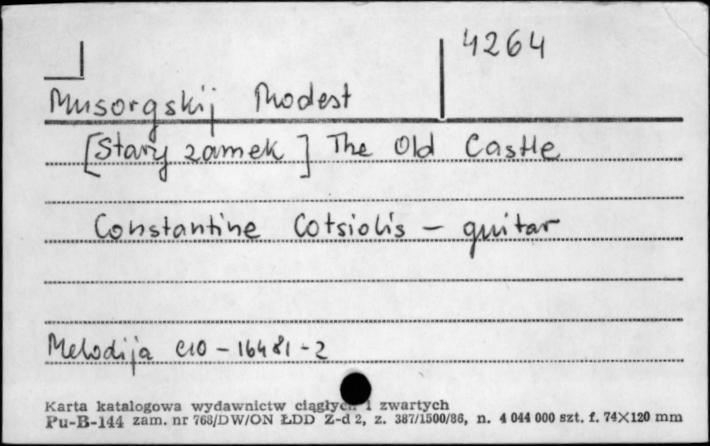 4264
Musorgskij Modest
[Stary zamek] The Old Castle
Constantine Cotsiolis - guitar
Melodija C10 - 16481 - 2
Karta katalogowa wydawnictw ciągłych i zwartych
Pu-B-144 zam. nr 768/DW/ON ŁDD Z-d 2, z. 387/1500/86, n. 4 044 000 szt. f. 74×120 mm